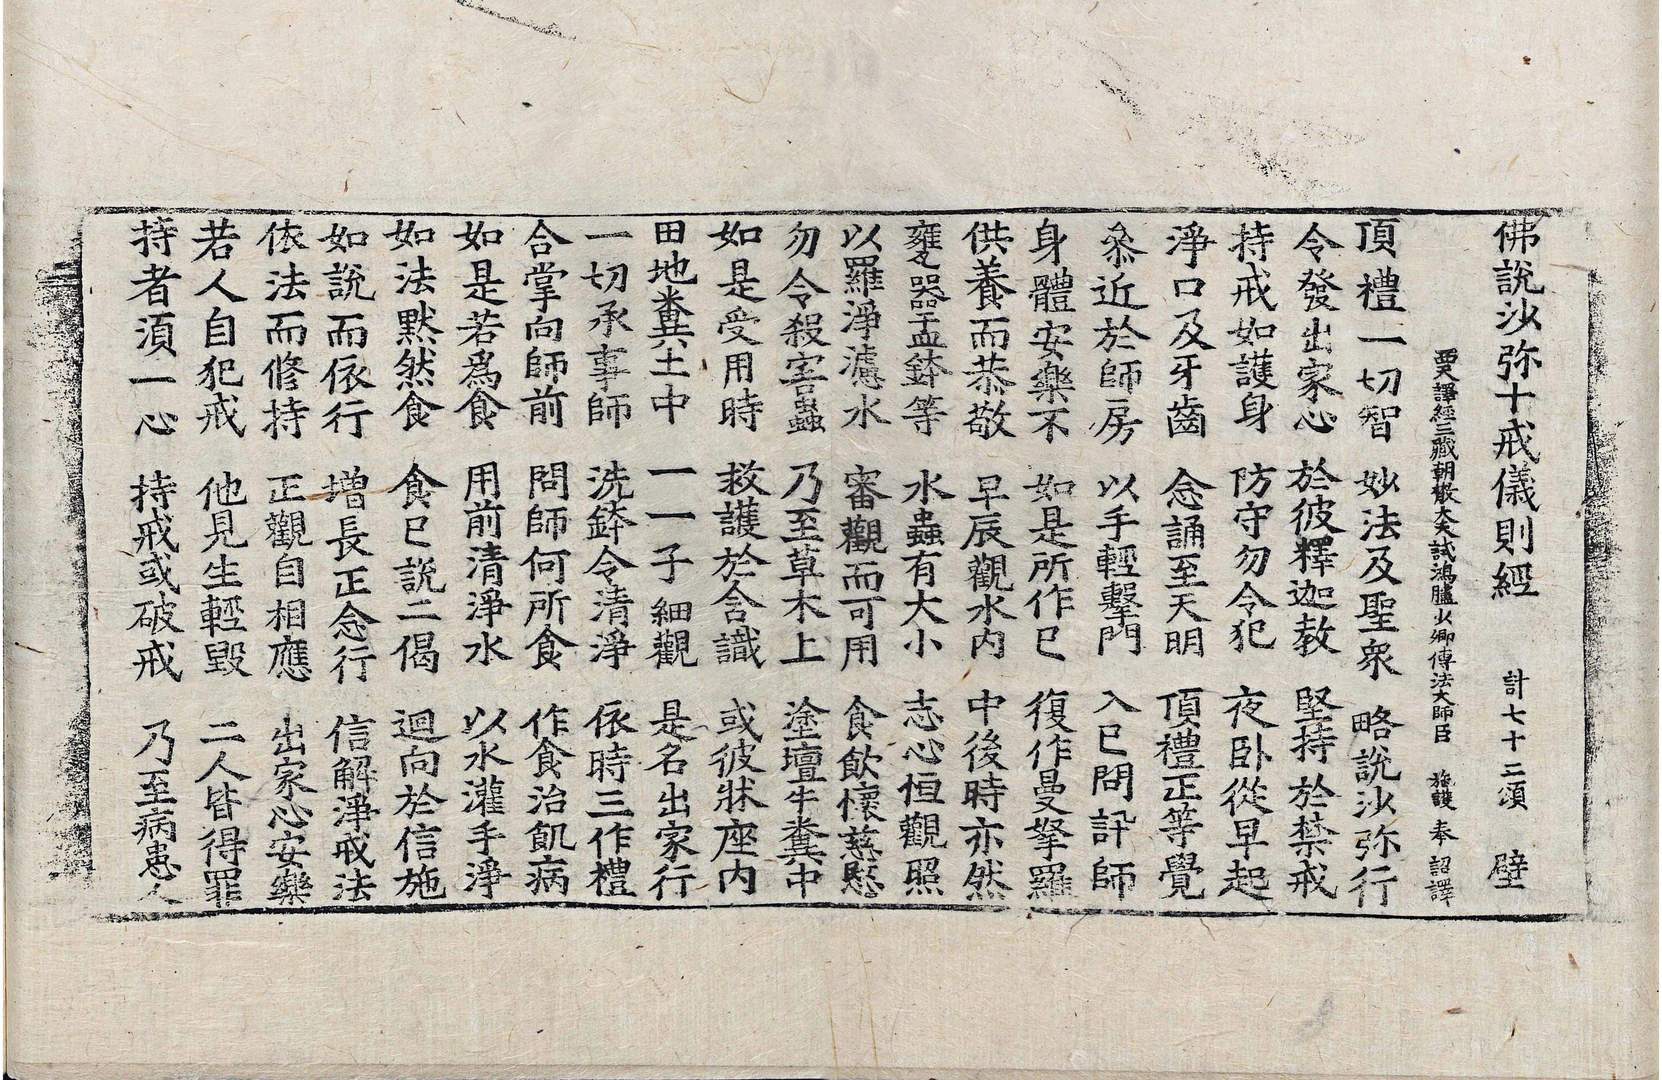 佛說沙弥十戒儀則經 計七十二頌 壁
西天譯經三藏朝散大夫試鴻臚少卿傳法大師臣 施護 奉 詔譯
頂禮一切智 妙法及聖衆 略說沙弥行
令發出家心 於彼釋迦教 堅持於禁戒
持戒如護身 防守勿令犯 夜卧從早起
淨口及牙齒 念誦至天明 頂禮正等覺
叅近於師房 以手輕擊門 入已問訊師
身體安樂不 如是所作已 復作曼拏羅
供養而恭敬 早辰觀水內 中後時亦然
瓮器盂鉢等 水蟲有大小 志心恒觀照
以羅淨濾水 審觀而可用 食飲懷慈愍
勿令殺害蟲 乃至草木上 塗壇牛糞中
如是受用時 救護於含識 或彼牀座內
田地糞土中 一一子細觀 是名出家行
一切承事師 洗鉢令清淨 依時三作禮
合掌向師前 問師何所食 作食治飢病
如是若爲食 用前清淨水 以水灌手淨
如法默然食 食已說二偈 迴向於信施
如說而依行 增長正念行 信解淨戒法
依法而修持 正觀自相應 出家心安樂
若人自犯戒 他見生輕毀 二人皆得罪
持者須一心 持戒或破戒 乃至病患人